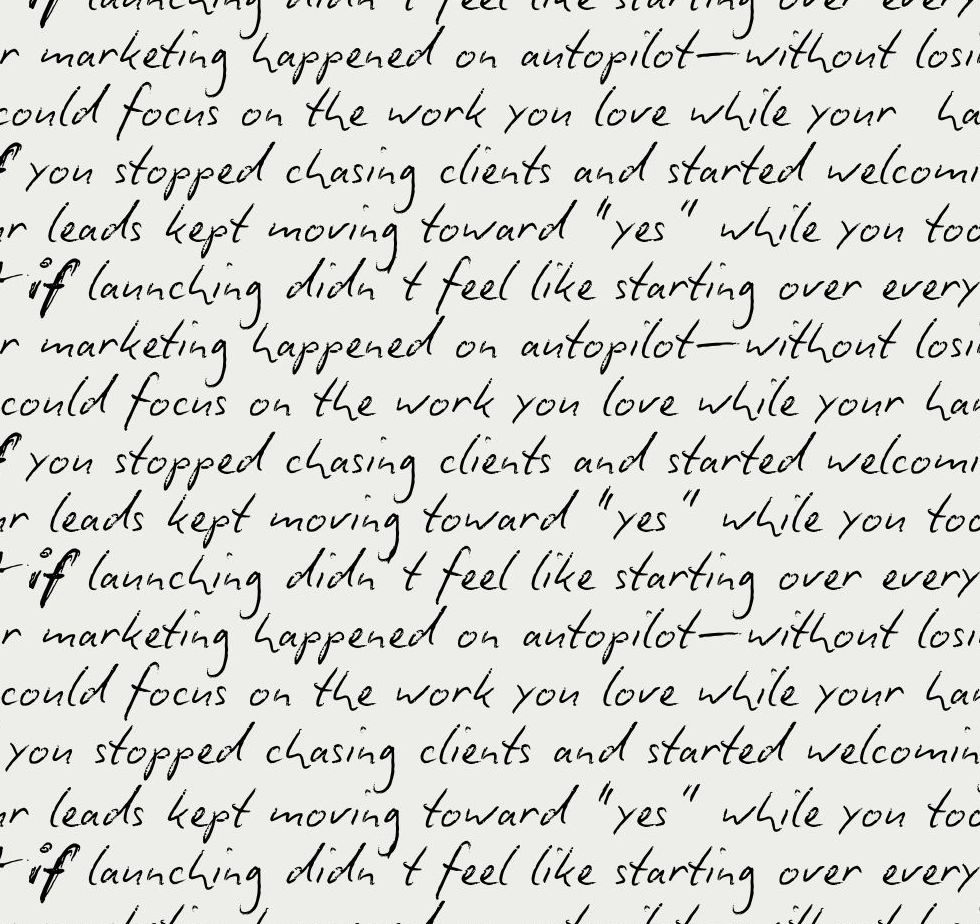 if launching didn't feel like starting over every
r marketing happened on autopilot—without losi
could focus on the work you love while your ha
f you stopped chasing clients and started welcomi
ur leads kept moving toward "yes" while you too
if launching didn't feel like starting over every
r marketing happened on autopilot—without losi
could focus on the work you love while your han
f you stopped chasing clients and started welcomi
ur leads kept moving toward "yes" while you too
if launching didn't feel like starting over every
r marketing happened on autopilot—without losi
could focus on the work you love while your han
you stopped chasing clients and started welcomin
ur leads kept moving toward "yes" while you too
if launching didn't feel like starting over every
marketing happened on autopilot—without losi